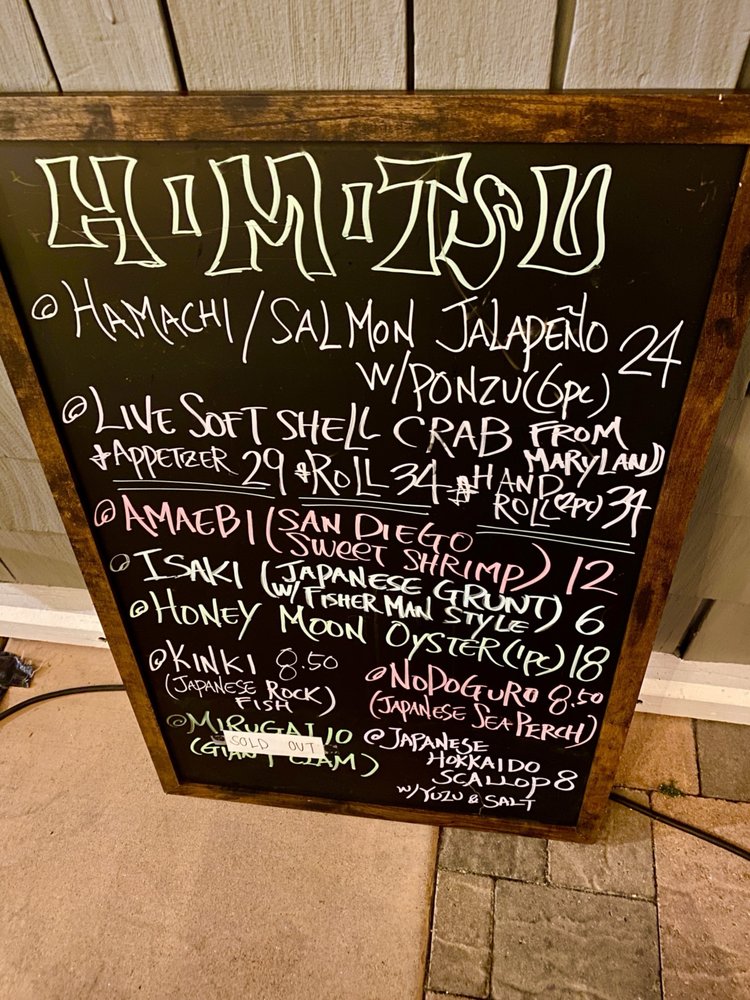 HIMITSU
HAMACHI/SALMON JALAPEÑO 24
W/PONZU(6pc)
LIVE SOFT SHELL CRAB FROM
MARYLAND
*APPETIZER 29 *ROLL 34 *HAND
ROLL(2pc) 34
AMAEBI (SAN DIEGO
SWEET SHRIMP) 12
ISAKI (JAPANESE GRUNT)
(W/FISHERMAN STYLE) 6
HONEY MOON OYSTER(1pc) 18
KINKI 8.50
(JAPANESE ROCK
FISH)
NODOGURO 8.50
(JAPANESE SEA PERCH)
MIRUGAI 10
SOLD OUT
(GIANT CLAM)
JAPANESE
HOKKAIDO
SCALLOP 8
W/YUZU & SALT